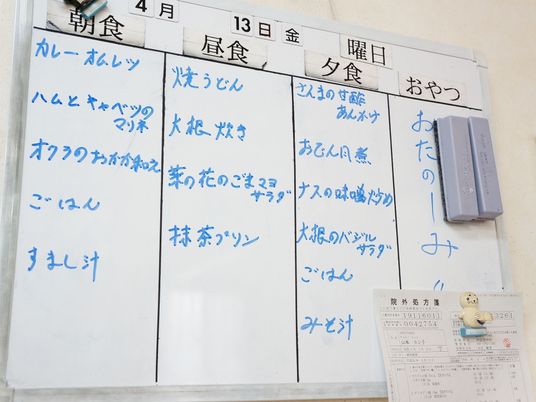 4月 13日 金 曜日
朝食
カレーオムレツ
ハムとキャベツの
マリネ
オクラのおかか和え
ごはん
すまし汁
昼食
焼うどん
大根炊き
菜の花のごまマヨ
サラダ
抹茶プリン
夕食
さんまの甘酢
あんかけ
おでん風煮
ナスの味噌炒め
大根のバジル
サラダ
ごはん
みそ汁
おやつ
おたのーしみ
院外処方箋
19116011
0042754
3261